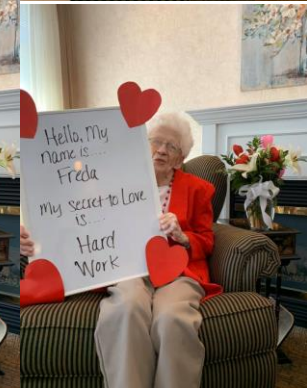 Hello, My
name is....
Freda
my secret to Love
is....
Hard
Work